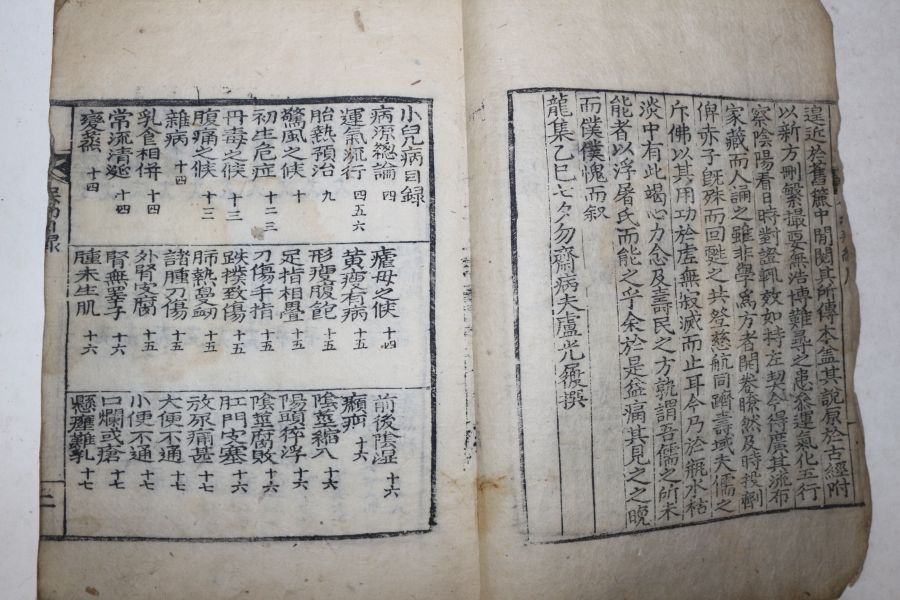 遑近於舊篋中閒閱其所傳本盖其說原於古經附
以新方刪繁撮要無浩博難尋之患叅運氣化五行
察陰陽看日時對證輒效如持左契令得廣其流布
家藏而人誦之雖非學爲方者開卷瞭然及時投劑
俾赤子旣殊而回甦之共登慈航同躋壽域夫儒之
斥佛以其用功於虛無寂滅而止耳今乃於親水枯
淡中有此竭心力念及壽民之方孰謂吾儒之所未
能者以浮屠氏而能之乎余於是益病其見之之晩
而僕僕愧而叙
龍集乙巳七夕勿齋病夫盧光履撰
小兒病目録
病流緫論 四
運氣流行 四五六
胎熱預治 九
驚風之候 十
初生危症 十二三
丹毒之候 十三
腹痛之候 十三
雜病 十四
乳食相併 十四
常流清涎 十四
變蒸 十四
瘧母之候 十四
黃瘦有病 十五
形瘦腹飽 十五
足指相疊 十五
刀傷手指 十五
跌撲致傷 十五
肺熱鼻衂 十五
諸腫刀傷 十五
外腎皮腐 十五
腎無睪子 十六
腫未生肌 十六
前後陰湿 十六
癩疝 十六
陰莖縮入 十六
陽頭脬浮 十六
陰莖腐敗 十六
肛門皮塞 十六
放尿痛甚 十七
大便不通 十七
小便不通 十七
口爛或瘡 十七
懸癰難乳 十七